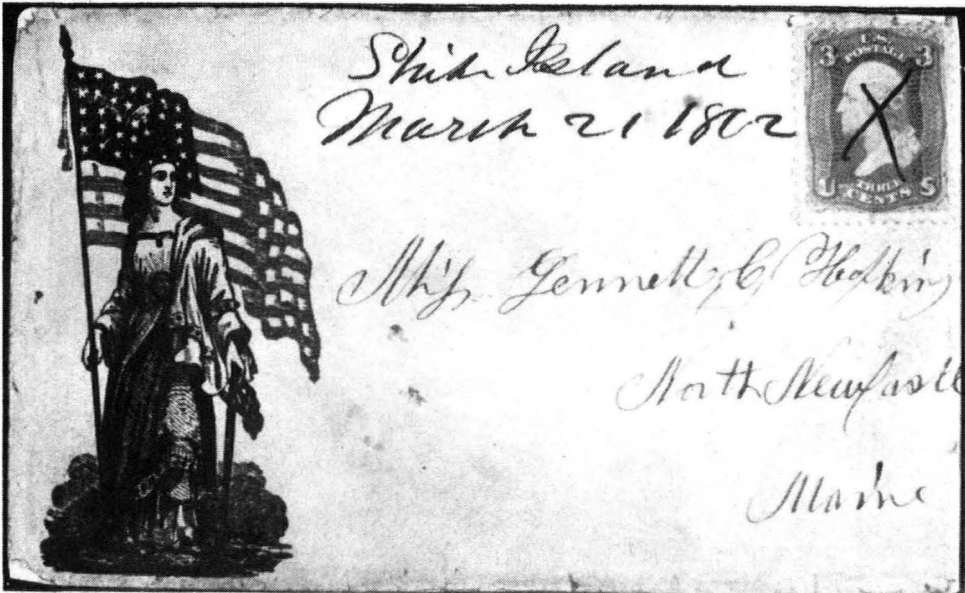 Ship Island
March 21 1862
U.S.
POSTAGE
3 3
THREE
CENTS
U S
Miss Jennett C Hopkins
North Newcastle
Maine